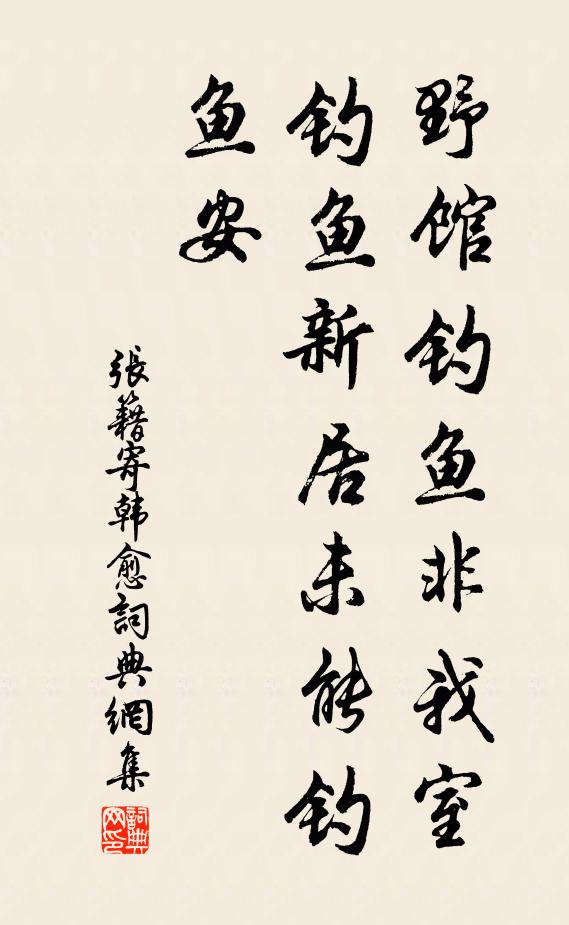 野馆钓鱼非我室
钓鱼新居未能钓
鱼安
張籍寄韩愈詞典網集
詞典
网印